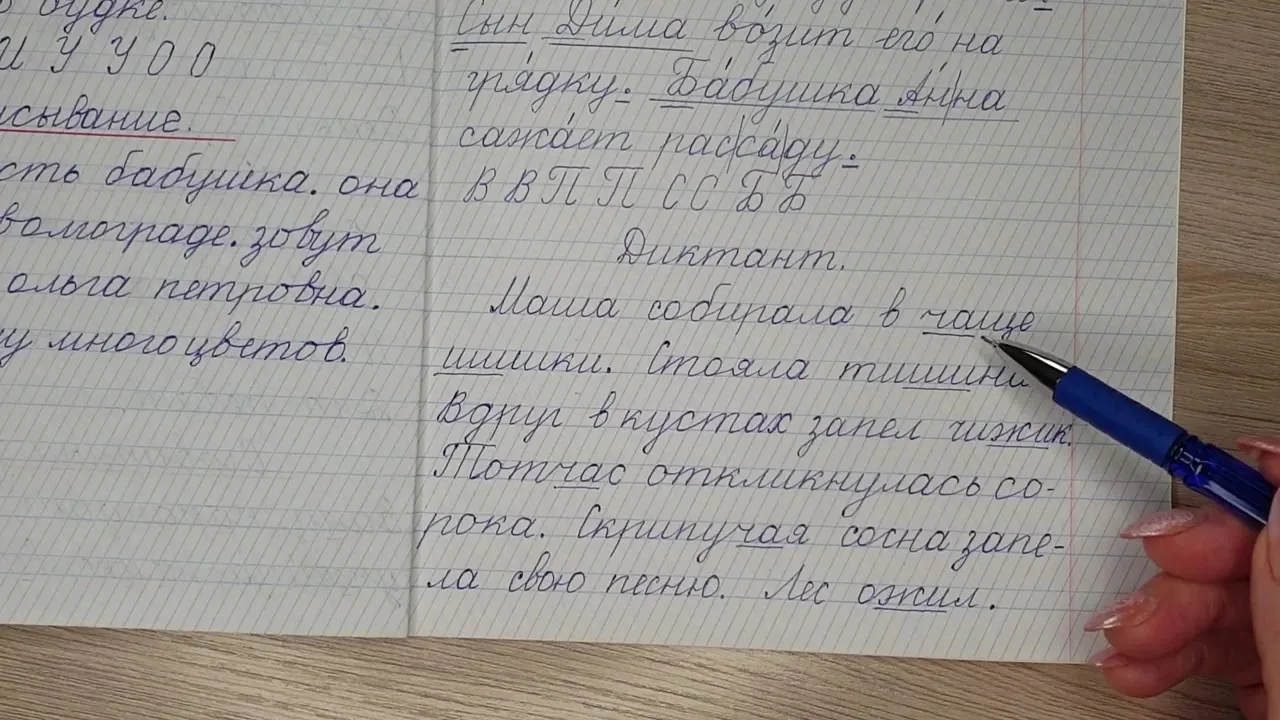 будке.
И У У О О
сывание.
сть бабушка. она
волгограде. зовут
ольга петровна.
у много цветов.
Сын Дима возит его на
грядку. Бабушка Ан|на
сажает рас|са|ду.
В В П П С С Б Б
Диктант.
Маша собирала в чаще
шишки. Стояла тишина
Вдруг в кустах запел чижик.
Тотчас откликнулась со-
рока. Скрипучая сосна запе-
ла свою песню. Лес ожил.